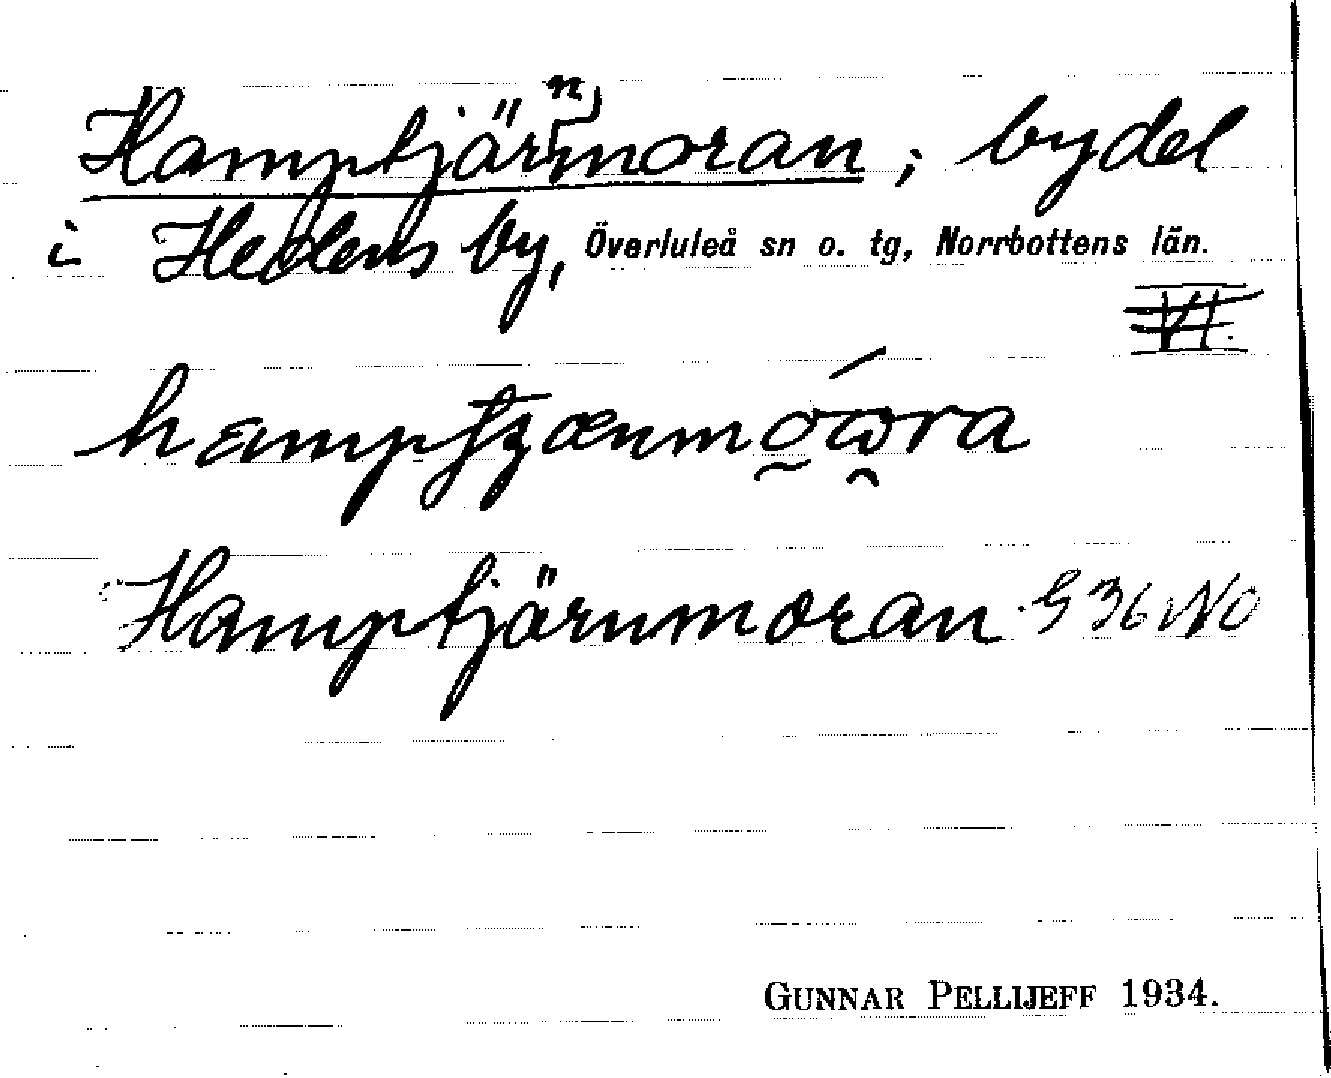 Hamptjärnmoran, bydel
i Hedens by, Överluleå sn o. tg, Norrbottens län.
VI.
Hamptjärnmoran G 36 NO
GUNNAR PELLIJEFF 1934.